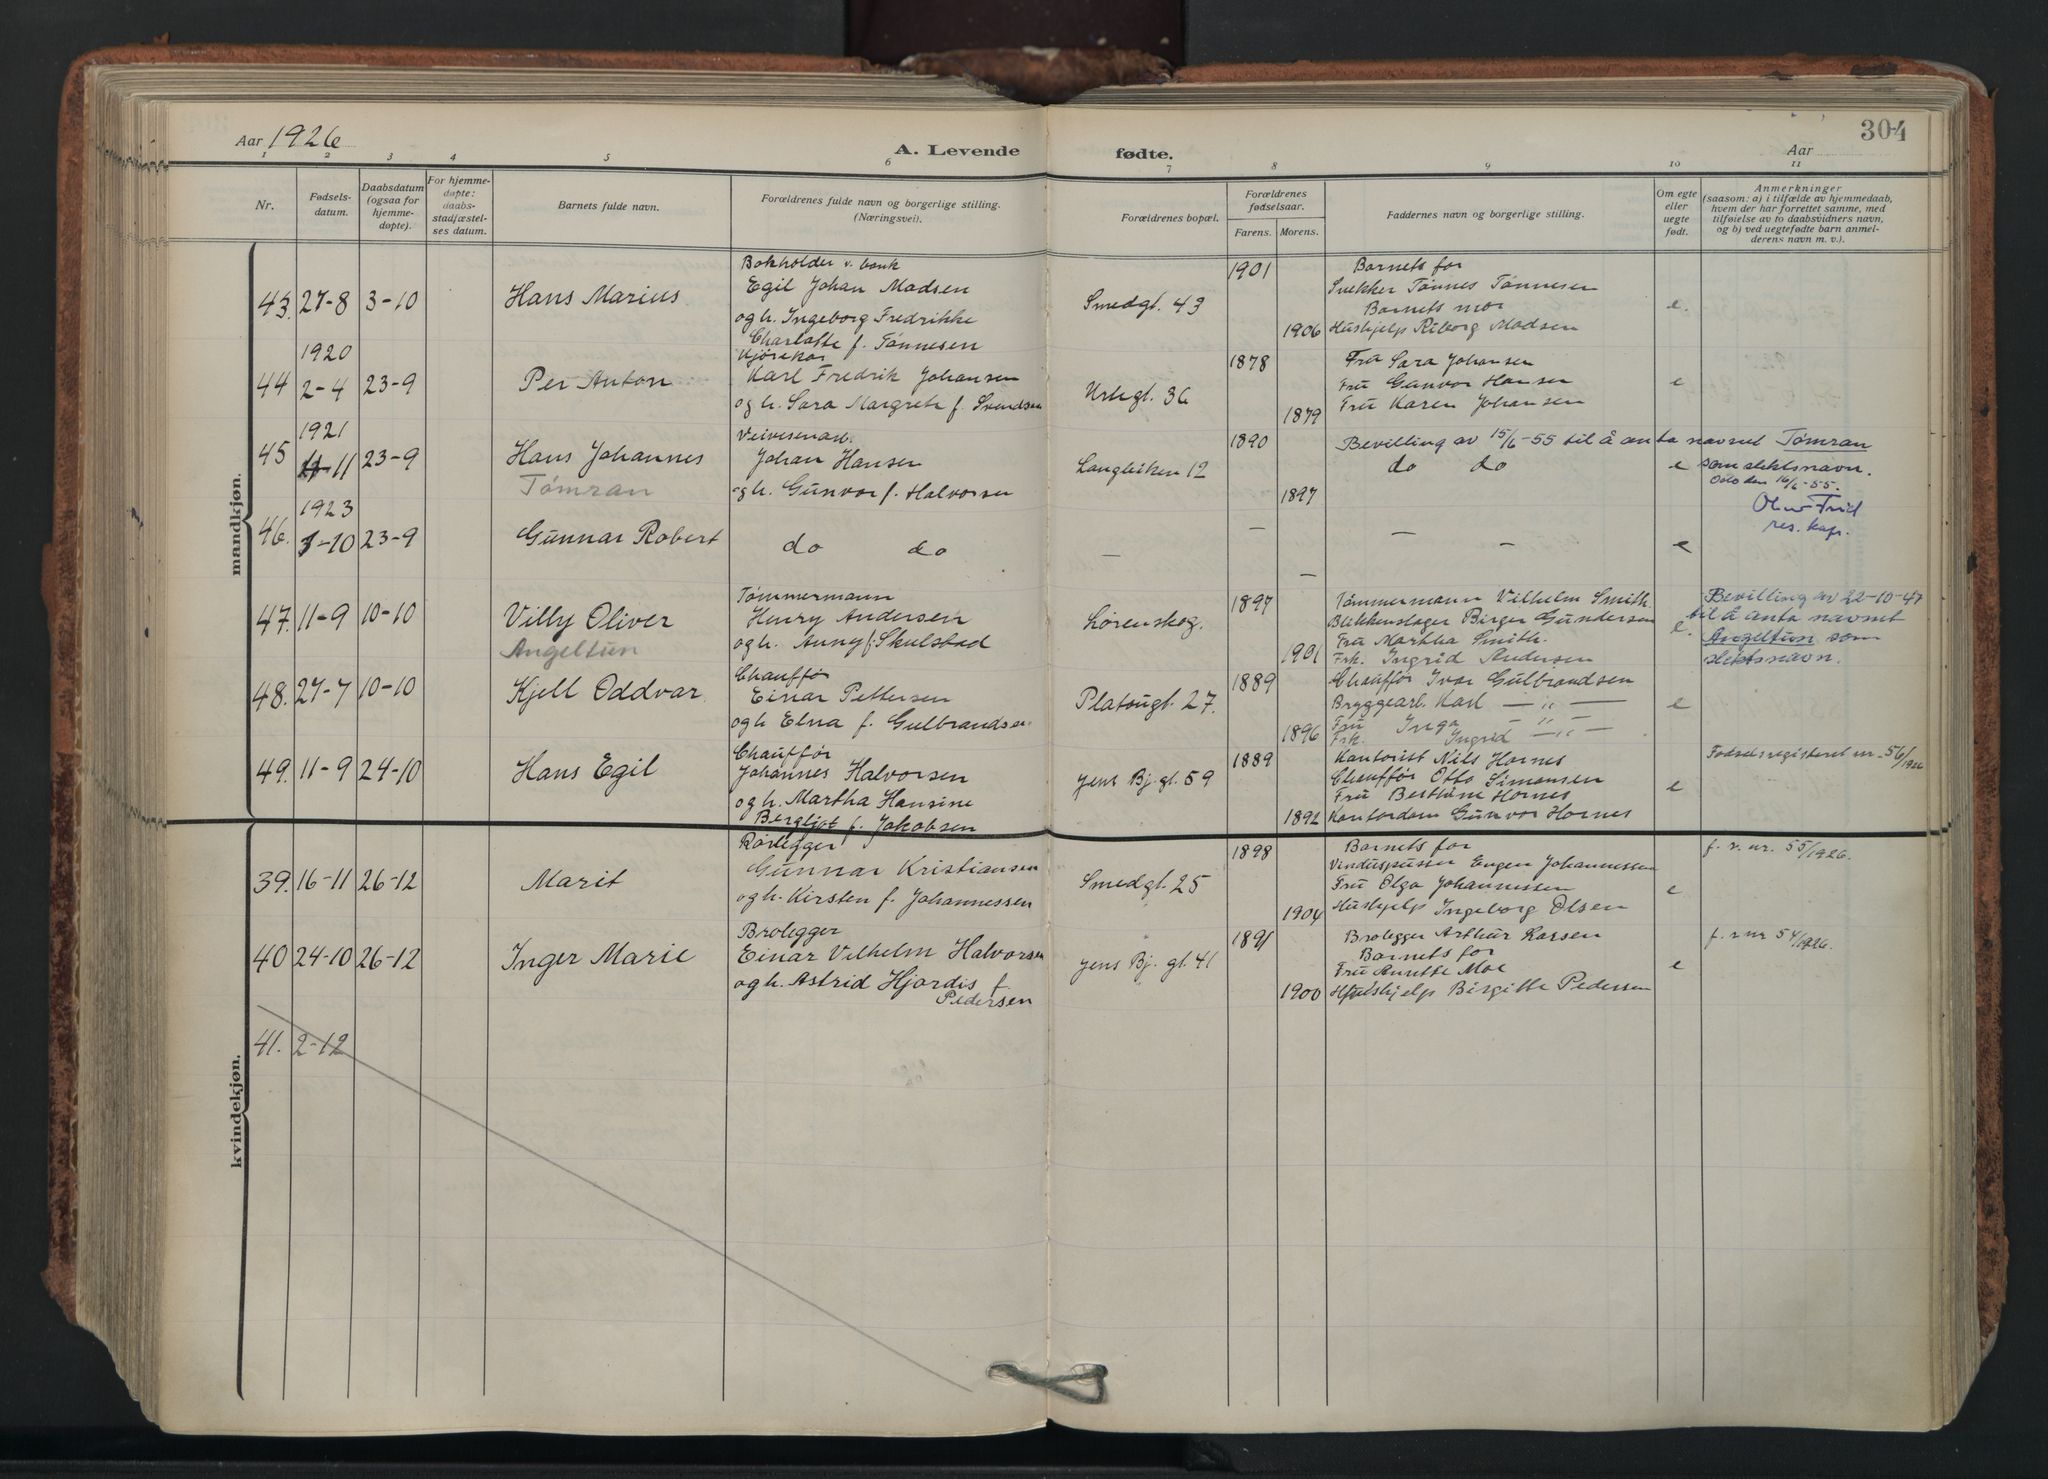 304
Aar 1926 A. Levende fødte. Aar
1 2 3 4 5 6 7 8 9 10 11
Nr.
Fødsels-
datum.
Daabsdatum
(ogsaa for
hjemme-
døpte).
For hjemme-
døpte:
daabs-
stadfæstel-
ses datum.
Barnets fulde navn.
Forældrenes fulde navn og borgerlige stilling.
(Næringsvei).
Forældrenes bopæl.
Forældrenes
fødselsaar.
Farens. Morens.
Faddernes navn og borgerlige stilling.
Om egte
eller
uegte
født.
Anmerkninger
(saasom: a) i tilfælde av hjemmedaab,
hvem der har forrettet samme, med
tilføielse av to daabsvidners navn,
og b) ved uegtefødte barn anmel-
derens navn m. v.).
mandkjøn.
43. 27-8 3-10 Hans Marius
Bokholder v. bank
Egil Johan Madsen
og h. Ingeborg Fredrikke
Charlotte f. Tønnesen
Smedgt. 43
1901
1906
Barnets far
Snekker Tønnes Tønnesen
Barnets mor
Hushjelp Riborg Madsen
e.
1920
44 2-4 23-9 Per Anton
Kjørekar
Karl Fredrik Johansen
og h. Sara Margrete f. Svendsen
Urtegt. 36
1878
1879
Fru Sara Johansen
Fru Gunvor Hansen
Fru Karen Johansen
e
1921
45 11 23-9 Hans Johannes
Tømran
Veivesenarb.
Johan Hansen
og h. Gunvor f. Halvorsen
Langleiken 12
1890
1897
Bevilling av 15/6-55 til å anta navnet Tømran
do do
e
som slektsnavn.
Oslo den 16/6-55.
res. kap.
1923
46. 3-10 23-9 Gunnar Robert
do do
— — — — —
e
47. 11-9 10-10 Villy Oliver
Angeltun
Tømmermann
Henry Andersen
og h. Anny f. Skulstad
Lørenskog.
1897
1901
Tømmermann Vilhelm Smith.
Blikkenslager Birger Gundersen
Fru Martha Smith.
Frk. Ingrid Andersen
e.
Bevilling av 22-10-47
til å anta navnet
Angeltun som
slektsnavn.
48. 27-7 10-10 Kjell Oddvar
Chauffør
Einar Pettersen
og h. Elna f. Gulbrandsen
Platougt. 27.
1889
1896
Chauffør Ivar Gulbrandsen
Bryggearb. Karl — „ —
Fru Inga — „ —
Frk. Ingrid — „ —
e
49. 11-9 24-10 Hans Egil
Chauffør
Johannes Halvorsen
og h. Martha Hansine
Bergljot f. Jakobsen
Jens Bj. gt. 59
1889
1892
Kontorist Nils Hornes
Chauffør Otto Simensen
Fru Bertine Hornes
Kontordam Gunvor Hornes
e
Fødselsregisteret nr. 56/1926
kvindekjøn.
39. 16-11 26-12 Marit
Rørlegger
Gunnar Kristiansen
og h. Kirsten f. Johannessen
Smedgt. 25
1898
1904
Barnets far
Vinduspusser Eugen Johannessen
Fru Olga Johannessen
Hushjelp Ingeborg Olsen
e
f. r. nr. 55/1926.
40 24-10 26-12 Inger Marie
Brolegger
Einar Vilhelm Halvorsen
og h. Astrid Hjørdis f.
Pedersen
Jens Bj. gt. 41
1891
1900
Brolegger Arthur Larsen
Barnets far
Fru Annette Moe
Hushjelp Birgitte Pedersen
e
f. r nr 54/1926.
41. 2-12